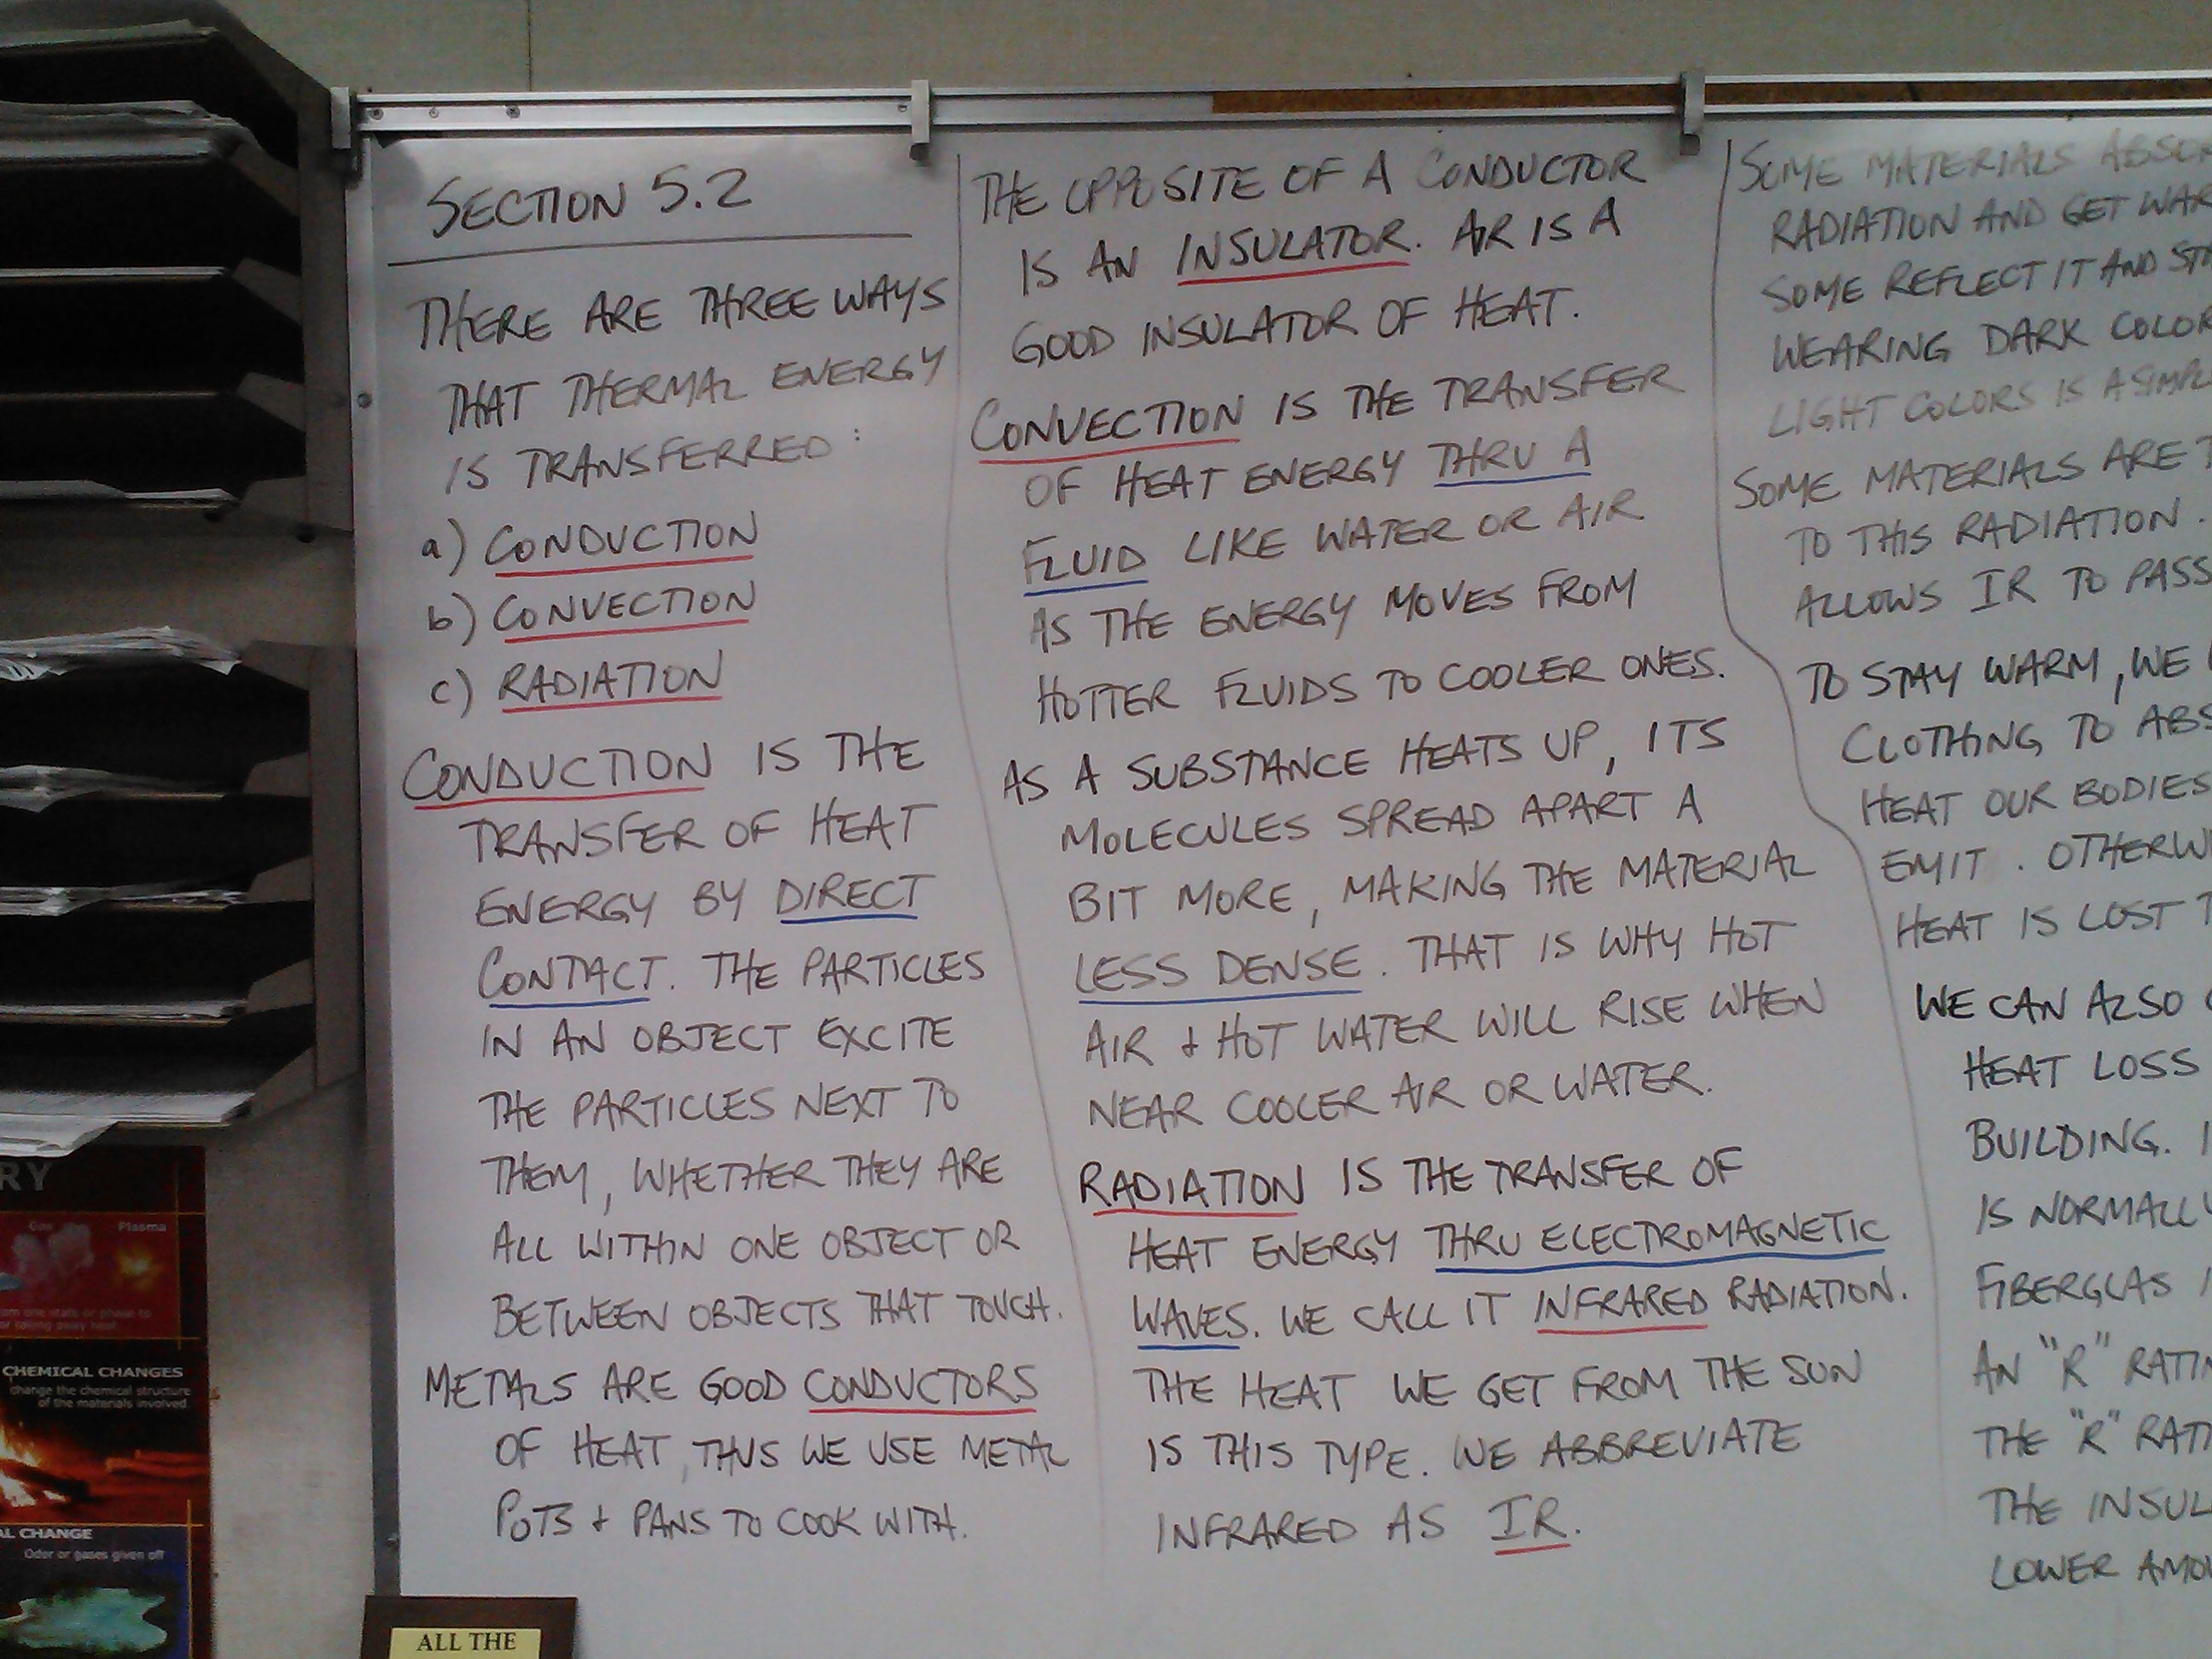 SECTION 5.2
THERE ARE THREE WAYS
THAT THERMAL ENERGY
IS TRANSFERRED:
a) CONDUCTION
b) CONVECTION
c) RADIATION
CONDUCTION IS THE
TRANSFER OF HEAT
ENERGY BY DIRECT
CONTACT. THE PARTICLES
IN AN OBJECT EXCITE
THE PARTICLES NEXT TO
THEM, WHETHER THEY ARE
ALL WITHIN ONE OBJECT OR
BETWEEN OBJECTS THAT TOUCH.
METALS ARE GOOD CONDUCTORS
OF HEAT, THUS WE USE METAL
POTS + PANS TO COOK WITH.
THE OPPOSITE OF A CONDUCTOR
IS AN INSULATOR. AIR IS A
GOOD INSULATOR OF HEAT.
CONVECTION IS THE TRANSFER
OF HEAT ENERGY THRU A
FLUID LIKE WATER OR AIR
AS THE ENERGY MOVES FROM
HOTTER FLUIDS TO COOLER ONES.
AS A SUBSTANCE HEATS UP, ITS
MOLECULES SPREAD APART A
BIT MORE, MAKING THE MATERIAL
LESS DENSE. THAT IS WHY HOT
AIR + HOT WATER WILL RISE WHEN
NEAR COOLER AIR OR WATER.
RADIATION IS THE TRANSFER OF
HEAT ENERGY THRU ELECTROMAGNETIC
WAVES. WE CALL IT INFRARED RADIATION.
THE HEAT WE GET FROM THE SUN
IS THIS TYPE. WE ABBREVIATE
INFRARED AS IR.
SOME MATERIALS
RADIATION AND GET
SOME REFLECT IT AND
WEARING DARK
LIGHT COLORS IS A
SOME MATERIALS ARE
TO THIS RADIATION.
ALLOWS IR TO PASS
TO STAY WARM, WE
CLOTHING TO
HEAT OUR BODIES
EMIT. 
HEAT IS LOST
WE CAN ALSO
HEAT LOSS
BUILDING.
IS NORMALLY
FIBERGLAS
AN "R"
THE "R"
THE
LOWER
RY
Gas Plasma
one state or phase to
or taking away heat.
CHEMICAL CHANGES
change the chemical structure
of the materials involved
AL CHANGE
Odor or gases given off
ALL THE